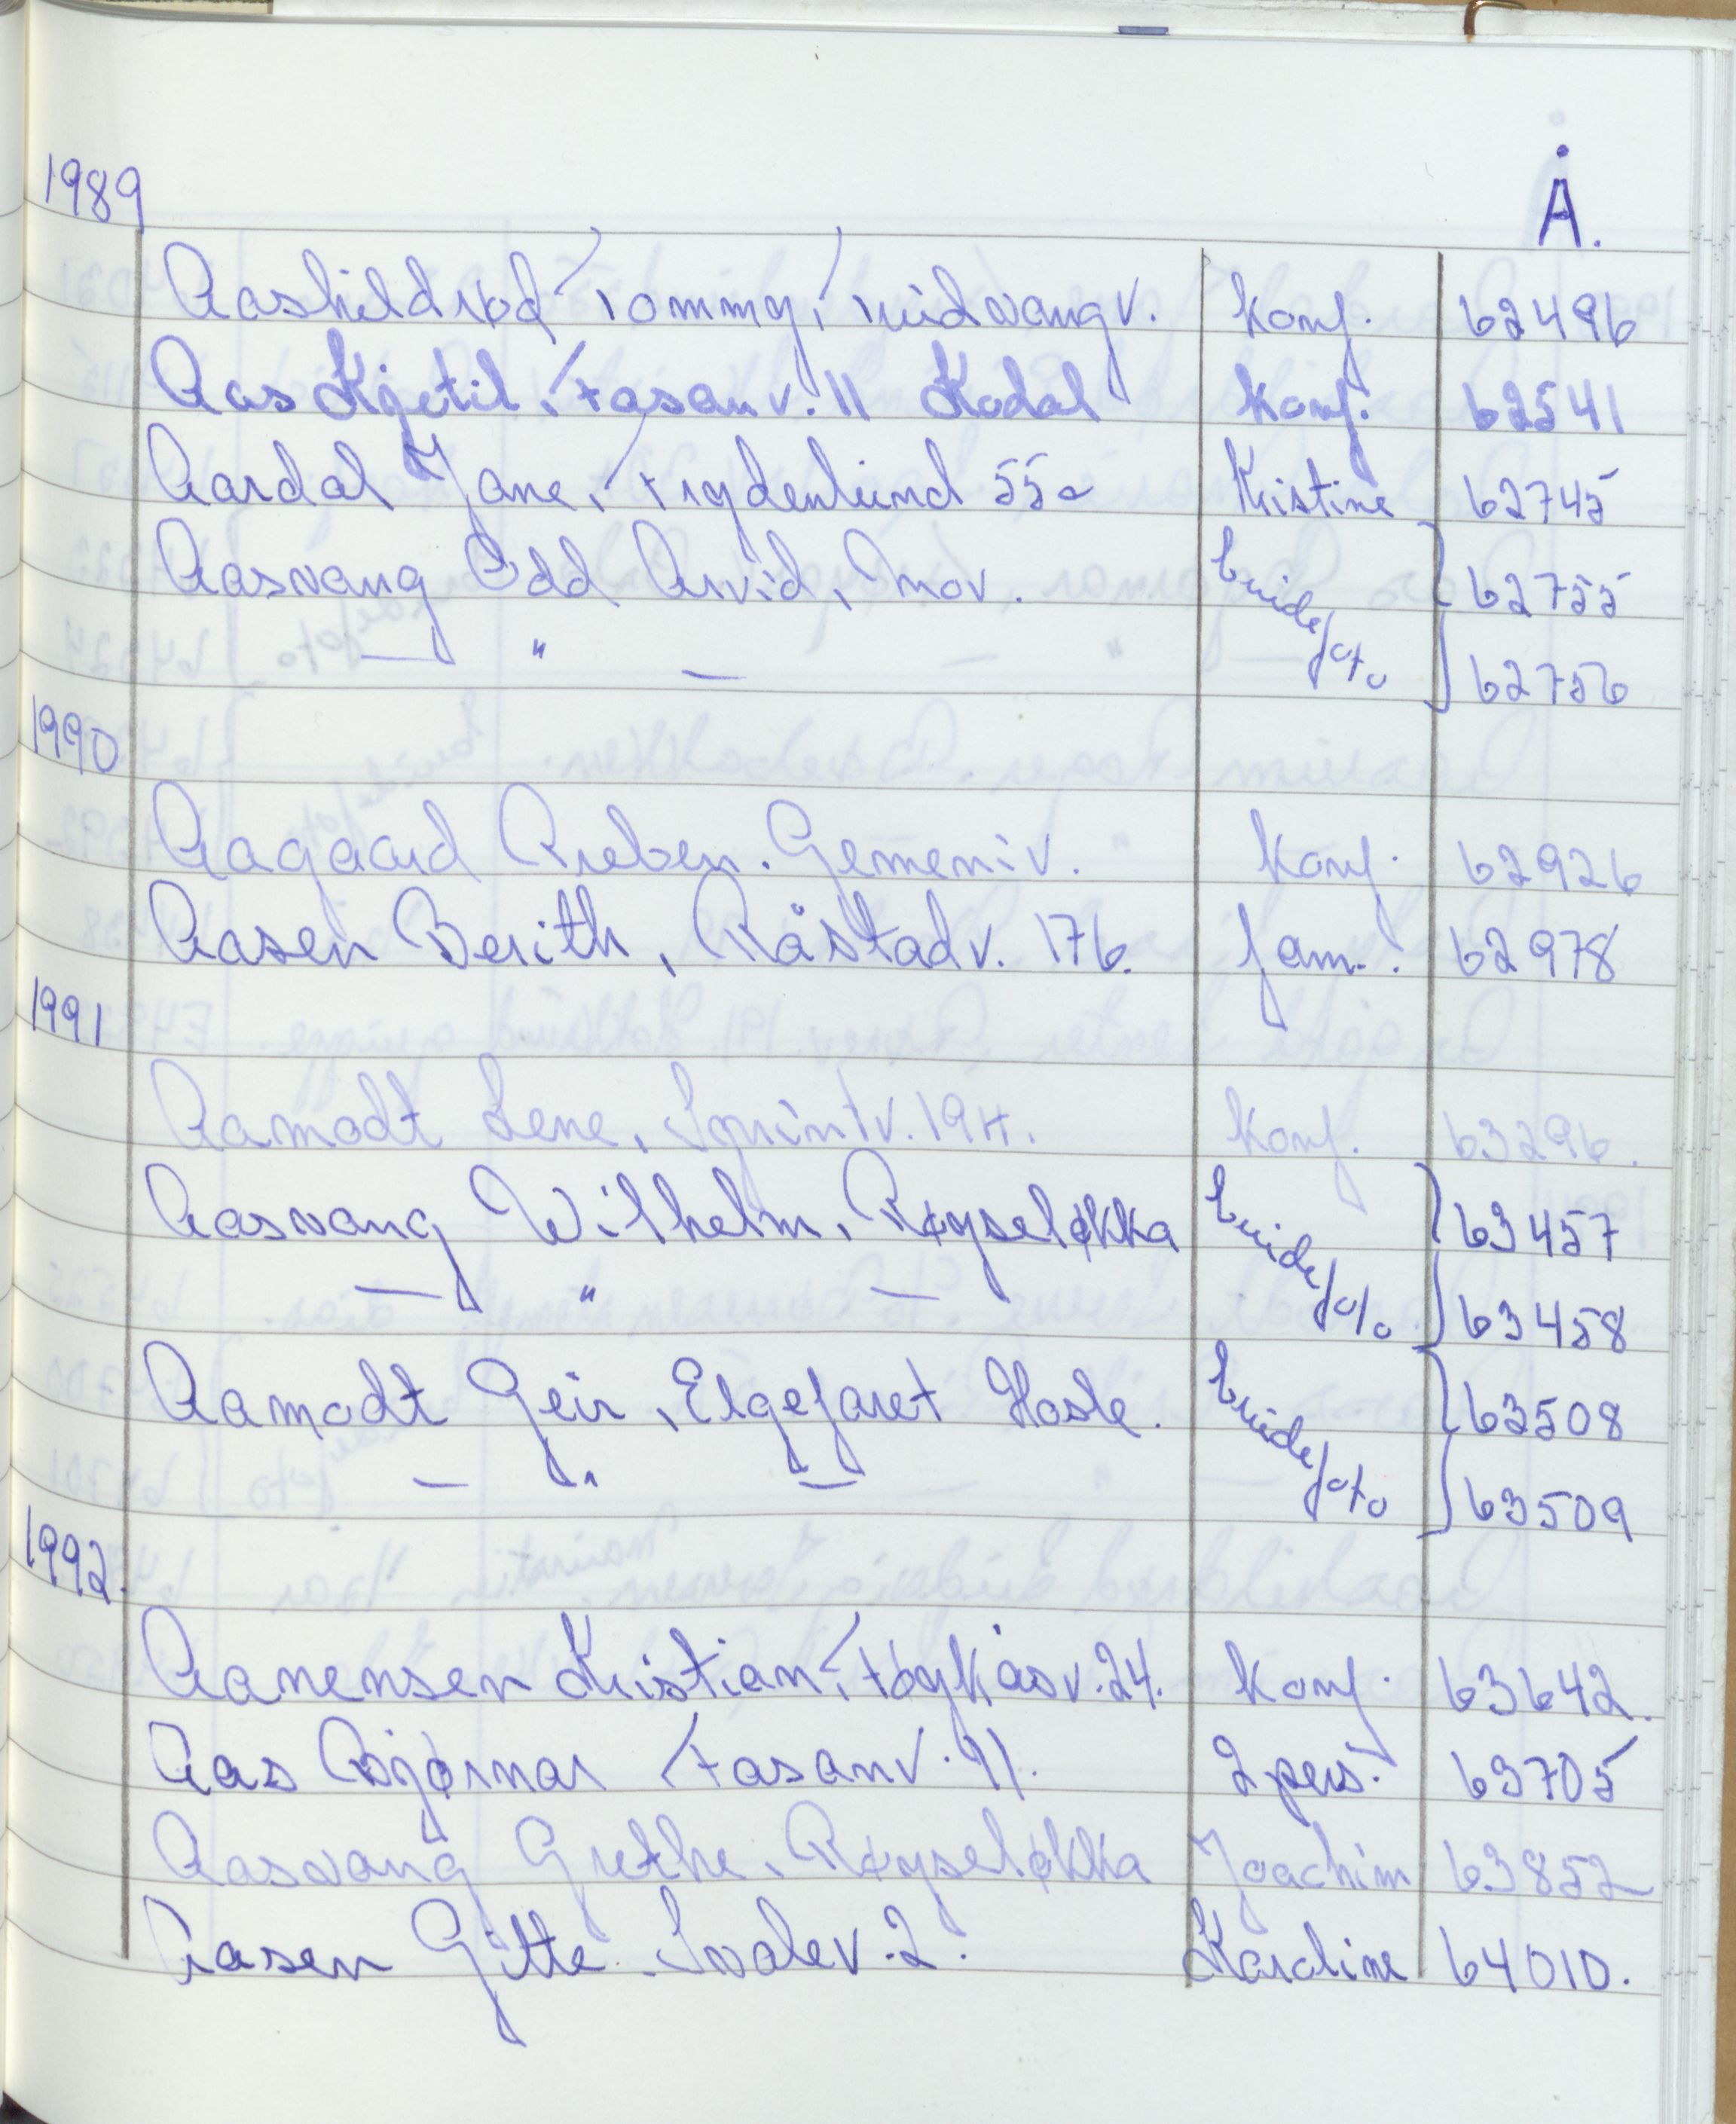 1989
Å.
Aashildrød Tommy, Midvangv. Konf. 62496
Aas Kjetil, Fasanv. 11 Kodal Konf. 62541
Aardal Jane, Frydenlund 55a Kristine 62745
Aasvang Odd Arvid, Mov. brudefoto 62755
— " — 62756
1990
Aagaard Preben. Gemeniv. Konf. 62926
Aasen Berith, Råstadv. 176. fam. 62978
1991
Aamodt Lene, Sprintv. 19H. Konf. 63296.
Aasvang Wilhelm, Røyseløkka brudefoto 63457
— " — 63458
Aamodt Geir, Elgefaret Hasle. brudefoto 63508
— " — 63509
1992.
Aanensen Kristian, Høykåsv. 24. Konf. 63642.
Aas Bjørnar Fasanv. 11. 2 pers. 63705
Aasvang Grethe, Røyseløkka Joachim 63852
Aasen Gitte. Svalev. 2. Karoline 64010.